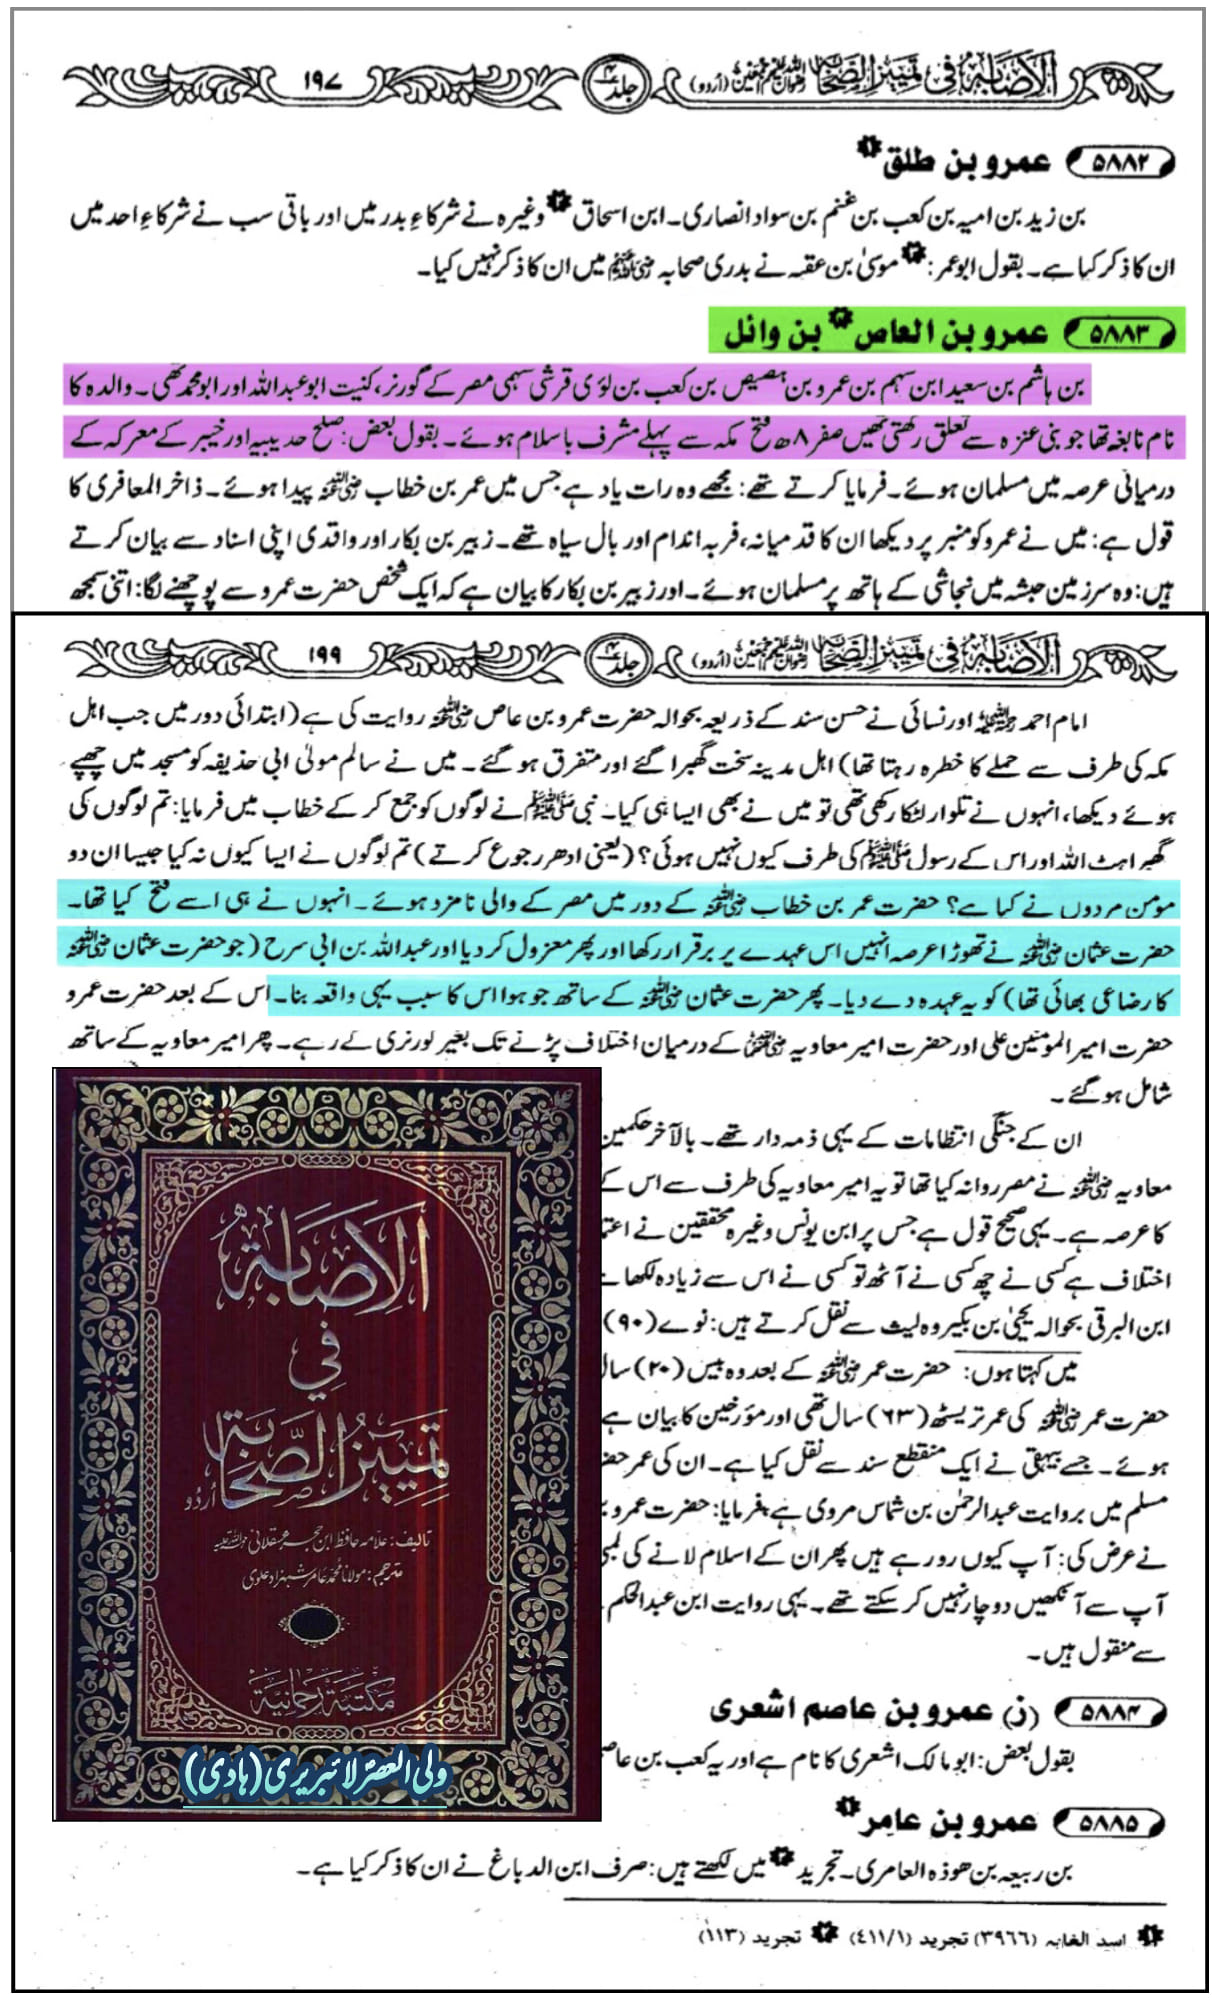 الاصابہ فی تمییز الصحابہ رضوان اللہ علیہم اجمعین (اُردو) جلد ۴ ۱۹۷
۵۸۸۲ عمرو بن طلق
بن زید بن امیہ بن کعب بن غنم بن سواد انصاری۔ ابن اسحاق وغیرہ نے شرکاءِ بدر میں اور باقی سب نے شرکاءِ احد میں
ان کا ذکر کیا ہے۔ بقول ابوعمر: موسیٰ بن عقبہ نے بدری صحابہ رضی اللہ عنہم میں ان کا ذکر نہیں کیا۔
۵۸۸۳ عمرو بن العاص بن وائل
بن ہاشم بن سعید ابن سہم بن عمرو بن ہصیص بن کعب بن لؤی قرشی سہمی مصر کے گورنر، کنیت ابوعبداللہ اور ابومحمد تھی۔ والدہ کا
نام نابغہ تھا جو بنی عنزہ سے تعلق رکھتی تھیں صفر ۸ھ فتح مکہ سے پہلے مشرف باسلام ہوئے۔ بقول بعض: صلح حدیبیہ اور خیبر کے معرکہ کے
درمیانی عرصہ میں مسلمان ہوئے۔ فرمایا کرتے تھے: مجھے وہ رات یاد ہے جس میں عمر بن خطاب رضی اللہ عنہ پیدا ہوئے۔ ذاخر المعافری کا
قول ہے: میں نے عمرو کو منبر پر دیکھا ان کا قد میانہ، فربہ اندام اور بال سیاہ تھے۔ زبیر بن بکار اور واقدی اپنی اسناد سے بیان کرتے
ہیں: وہ سرزمین حبشہ میں نجاشی کے ہاتھ پر مسلمان ہوئے۔ اور زبیر بن بکار کا بیان ہے کہ ایک شخص حضرت عمرو سے پوچھنے لگا: اتنی سمجھ
الاصابہ فی تمییز الصحابہ رضوان اللہ علیہم اجمعین (اُردو) جلد ۴ ۱۹۹
امام احمد رحمۃ اللہ علیہ اور نسائی نے حسن سند کے ذریعہ بحوالہ حضرت عمرو بن عاص رضی اللہ عنہ روایت کی ہے (ابتدائی دور میں جب اہل
مکہ کی طرف سے حملے کا خطرہ رہتا تھا) اہل مدینہ سخت گھبرا گئے اور متفرق ہو گئے۔ میں نے سالم مولیٰ ابی حذیفہ کو مسجد میں چھپے
ہوئے دیکھا، انہوں نے تلوار لٹکا رکھی تھی تو میں نے بھی ایسا ہی کیا۔ نبی صلی اللہ علیہ وسلم نے لوگوں کو جمع کر کے خطاب میں فرمایا: تم لوگوں کی
گھبراہٹ اللہ اور اس کے رسول صلی اللہ علیہ وسلم کی طرف کیوں نہیں ہوئی؟ (یعنی ادھر رجوع کرتے) تم لوگوں نے ایسا کیوں نہ کیا جیسا ان دو
مومن مردوں نے کیا ہے؟ حضرت عمر بن خطاب رضی اللہ عنہ کے دور میں مصر کے والی نامزد ہوئے۔ انہوں نے ہی اسے فتح کیا تھا۔
حضرت عثمان رضی اللہ عنہ نے تھوڑا عرصہ انہیں اس عہدے پر برقرار رکھا اور پھر معزول کر دیا اور عبداللہ بن ابی سرح (جو حضرت عثمان رضی اللہ عنہ
کا رضاعی بھائی تھا) کو یہ عہدہ دے دیا۔ پھر حضرت عثمان رضی اللہ عنہ کے ساتھ جو ہوا اس کا سبب یہی واقعہ بنا۔ اس کے بعد حضرت عمرو
حضرت امیر المومنین علی اور حضرت امیر معاویہ رضی اللہ عنہما کے درمیان اختلاف پڑنے تک بغیر گورنری کے رہے۔ پھر امیر معاویہ کے ساتھ
شامل ہو گئے۔
ان کے جنگی انتظامات کے یہی ذمہ دار تھے۔ بالآخر حکمین
معاویہ رضی اللہ عنہ نے مصر روانہ کیا تھا تو یہ امیر معاویہ کی طرف سے اس کے
کا عرصہ ہے۔ یہی صحیح قول ہے جس پر ابن یونس وغیرہ محققین نے اعتما
اختلاف ہے کسی نے چھ کسی نے آٹھ تو کسی نے اس سے زیادہ لکھا ہے
ابن البرقی بحوالہ یحییٰ بن بکیر وہ لیث سے نقل کرتے ہیں: نوے (۹۰)
میں کہتا ہوں: حضرت عمر رضی اللہ عنہ کے بعد وہ بیس (۲۰) سال
حضرت عمر رضی اللہ عنہ کی عمر تریسٹھ (۶۳) سال تھی اور مؤرخین کا بیان ہے
ہوئے۔ جسے بیہقی نے ایک منقطع سند سے نقل کیا ہے۔ ان کی عمر حضر
مسلم میں بروایت عبدالرحمٰن بن شماس مروی ہے، فرمایا: حضرت عمرو بن
نے عرض کی: آپ کیوں رو رہے ہیں پھر ان کے اسلام لانے کی لمبی
آپ سے آنکھیں دوچار نہیں کر سکتے تھے۔ یہی روایت ابن عبدالحکم
سے منقول ہیں۔
۵۸۸۴ (ز) عمرو بن عاصم اشعری
بقول بعض: ابو مالک اشعری کا نام ہے اور یہ کعب بن عاص
۵۸۸۵ عمرو بن عامر
بن ربیعہ بن ھوذہ العامری۔ تجرید میں لکھتے ہیں: صرف ابن الدباغ نے ان کا ذکر کیا ہے۔
۱ اسد الغابہ (۳۹۶۶) تجرید (۴۱۱/۱) ۲ تجرید (۱۱۳)
الاصابة
في
تمييز الصحابة
اُردُو
تالیف: علامہ حافظ ابن حجر عسقلانی رحمۃ اللہ علیہ
مترجم: مولانا محمد عامر شہزاد علوی
مکتبہ رحمانیہ
ولی العصر لائبریری (ہادی)